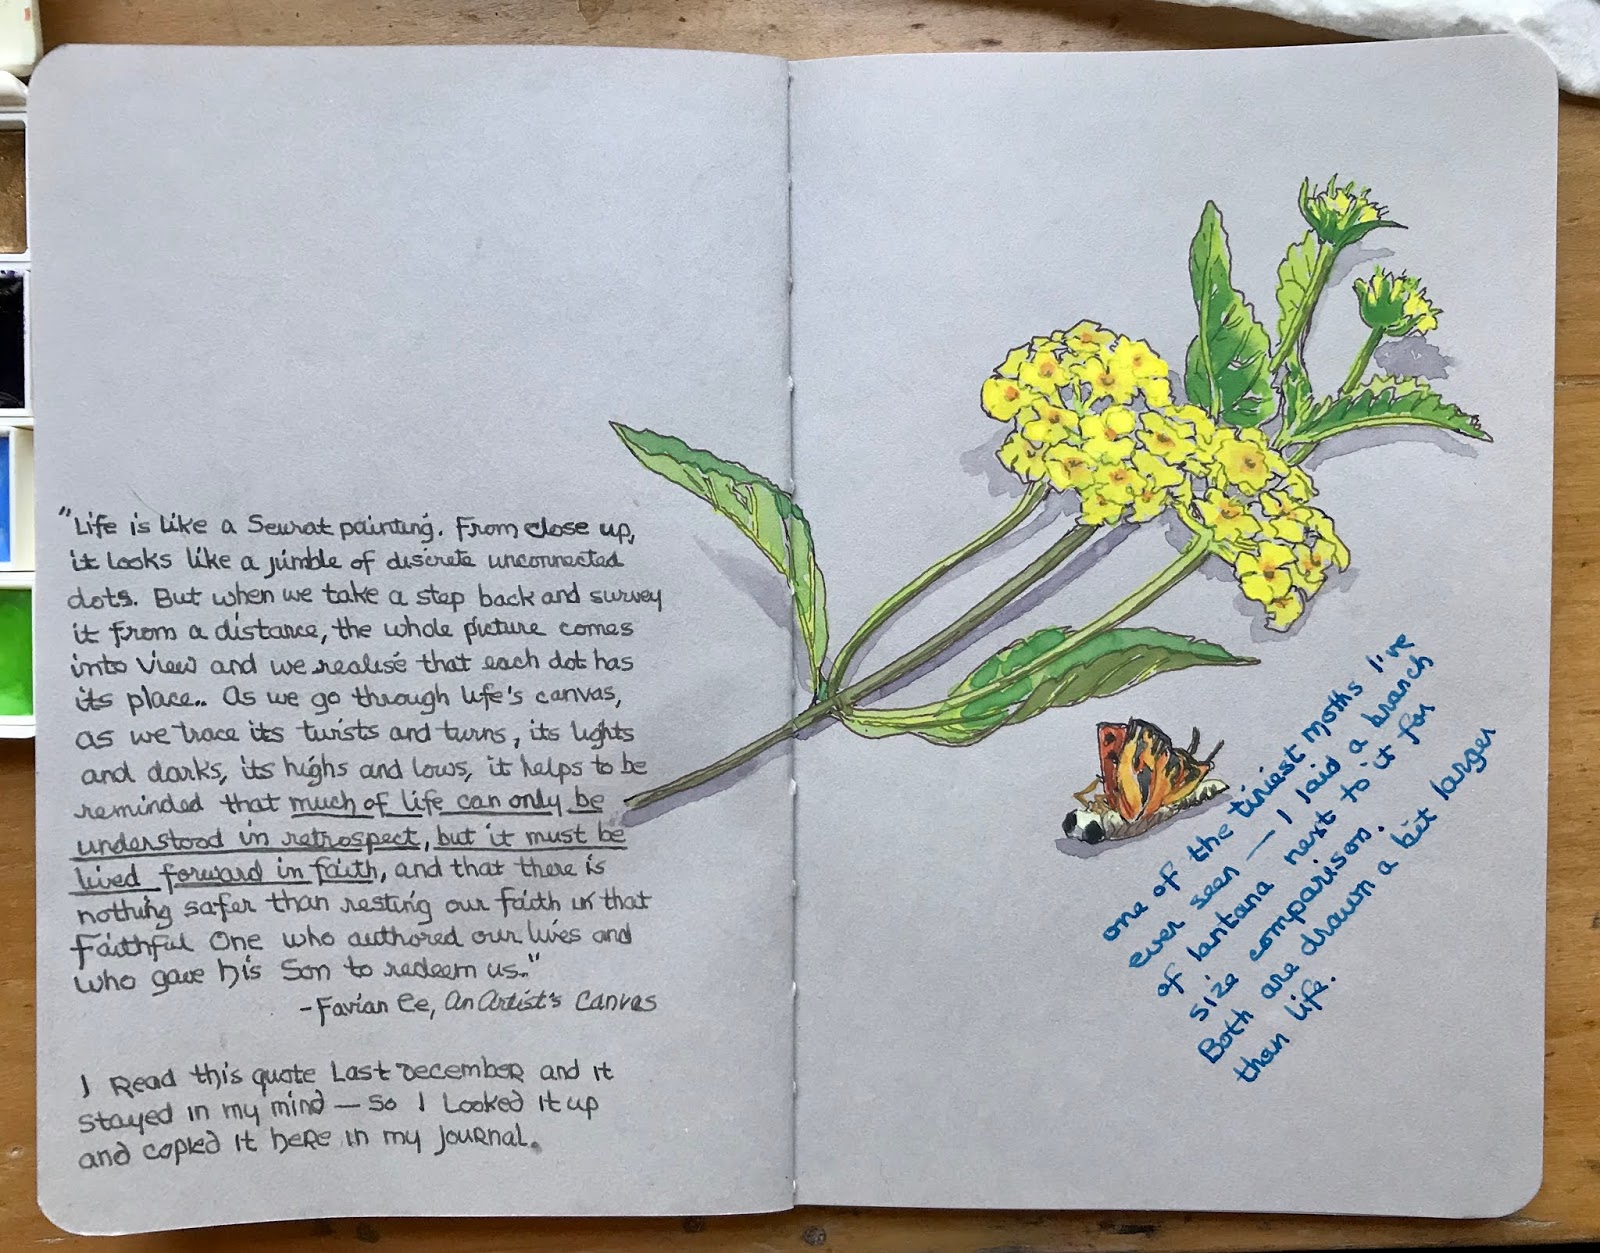 "Life is like a Seurat painting. From close up,
it looks like a jumble of discrete unconnected
dots. But when we take a step back and survey
it from a distance, the whole picture comes
into view and we realise that each dot has
its place.. As we go through life's canvas,
as we trace its twists and turns, its lights
and darks, its highs and lows, it helps to be
reminded that much of life can only be
understood in retrospect, but it must be
lived forward in faith, and that there is
nothing safer than resting our faith in that
Faithful One who authored our lives and
who gave his Son to redeem us."
- Favian Ee, An Artist's Canvas
I Read this quote Last December and it
stayed in my mind — so I Looked it up
and copied it here in my journal.
one of the tiniest moths I've
ever seen — I laid a branch
of lantana next to it for
size comparison.
Both are drawn a bit larger
than life.